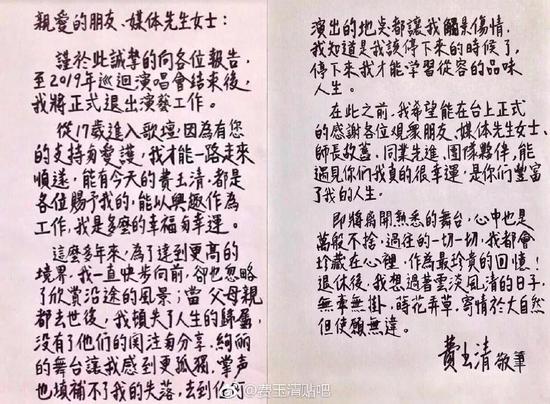 親愛的朋友、媒体先生女士：
謹於此誠摯的向各位報告，
至2019年巡迴演唱會結束後，
我將正式退出演藝工作。
從17歲進入歌壇，因為有您
的支持与愛護，我才能一路走來
順遂，能有今天的費玉清，都是
各位賜予我的，能以興趣作為
工作，我是多麼的幸福与幸運。
這麼多年來，為了達到更高的
境界，我一直快步向前，卻也忽略
了欣賞沿途的風景；當父母親
都去世後，我頓失了人生的歸屬，
沒有了他們的関注与分享，絢麗
的舞台讓我感到更孤獨，掌声
也填補不了我的失落，去到任何
演出的地点都讓我觸景傷情，
我知道是我該停下來的時候了，
停下來我才能学習從容的品味
人生。
在此之前，我希望能在台上正式
的感谢各位观眾朋友、媒体先生女士、
師長故舊、同業先進、團隊夥伴，能
遇見你们我真的很幸運，是你們豐富
了我的人生。
即將离開熟悉的舞台，心中也是
萬般不捨，過往的一切一切，我都會
珍藏在心裡，作為最珍貴的回憶！
退休後，我想過著雲淡風清的日子，
無牽無掛，時花弄草，寄情於大自然
但使願無違。
費玉清 敬筆
@费玉清贴吧